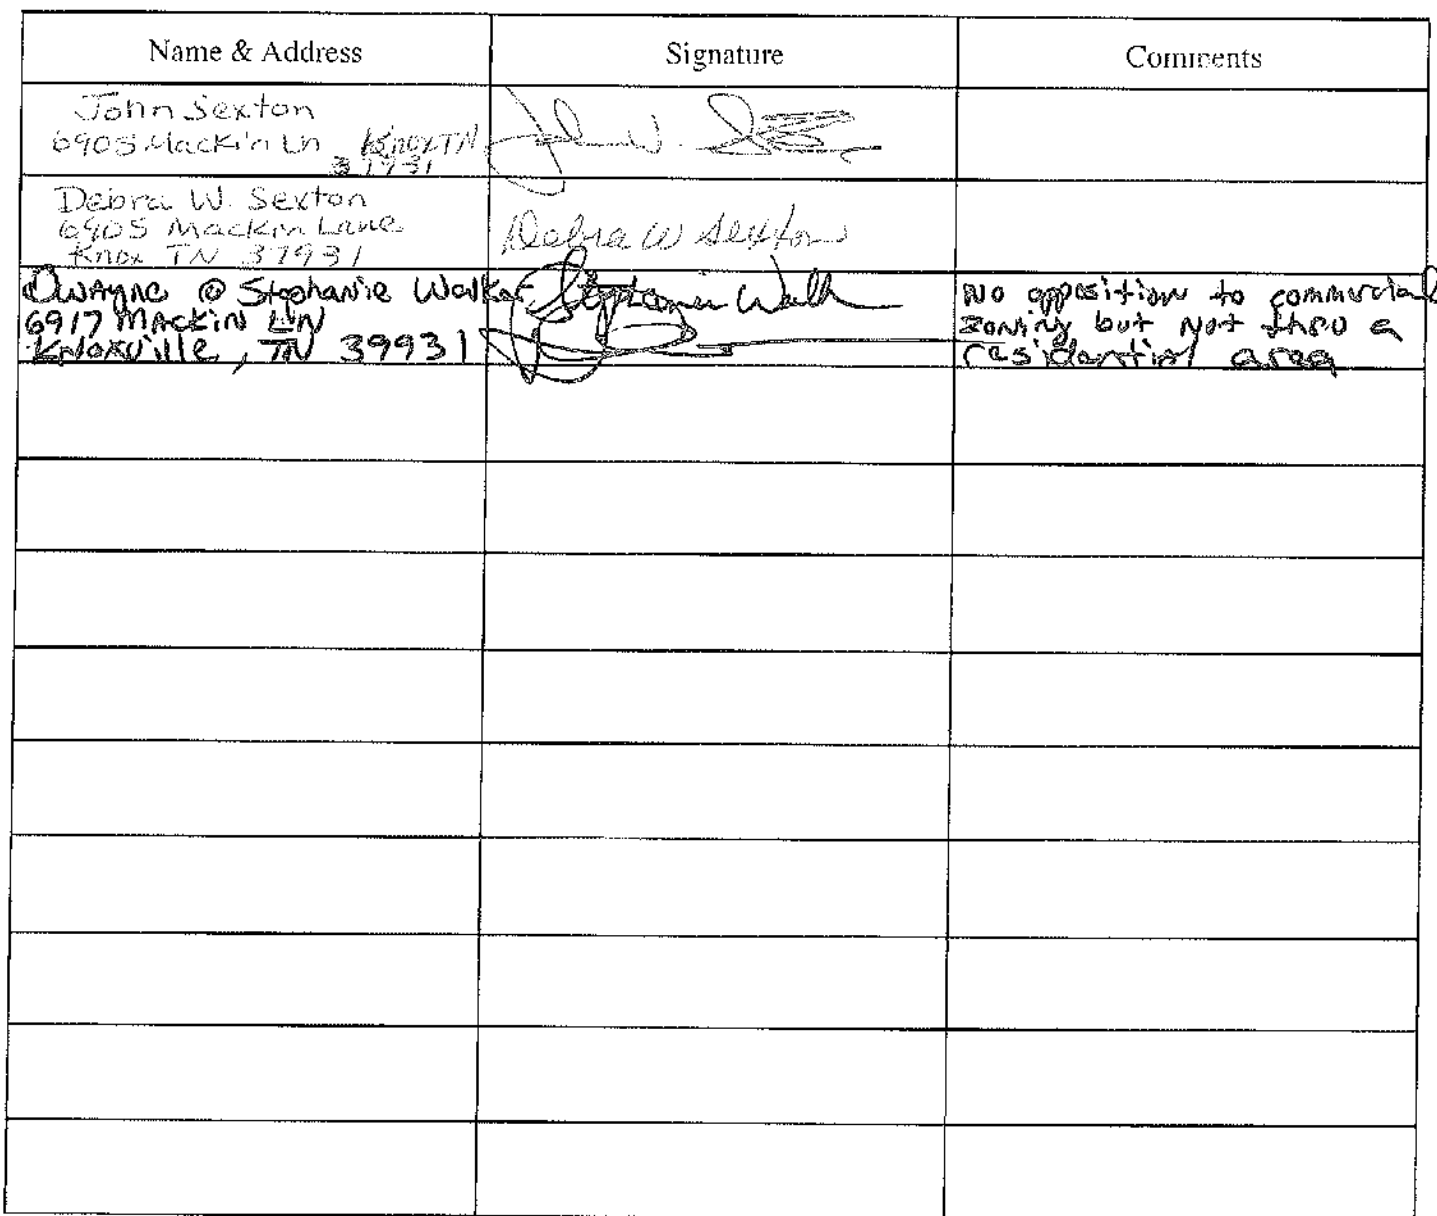 Name & Address Signature Comments
John Sexton
6905 Mackin Ln Knox TN
37931
John W.
Debra W. Sexton
6905 Mackin Lane
Knox TN 37931
Debra W Sexton
Dwayne @ Stephanie Walker
6917 Mackin Ln
Knoxville, TN 39931
Stephanie Walk
No opposition to commercial
zoning but not thru a
residential area